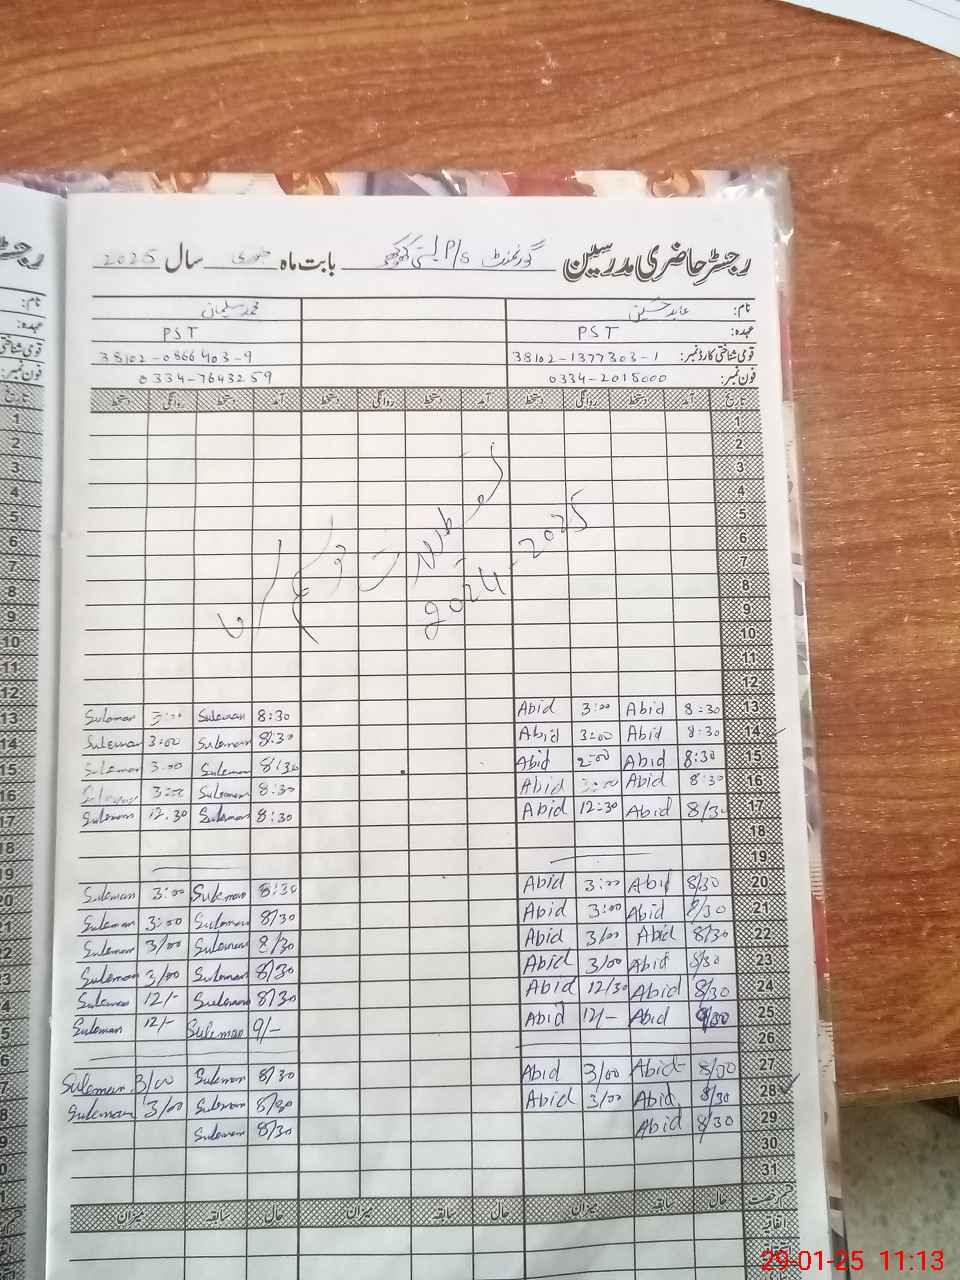 رجسٹر حاضری مدرسین گورنمنٹ P/S بستی کھوکھر بابت ماہ جنوری سال 2025
نام: عابد حسین محمد سلیمان
عہدہ: PST PST
قومی شناختی کارڈ نمبر: 38102-1377303-1 38102-0866403-9
فون نمبر: 0334-2015000 0334-7643259
تاریخ آمد دستخط روانگی دستخط آمد دستخط روانگی دستخط آمد دستخط روانگی دستخط
1
2
3
4
5
6
7
8
9
10
11
12
تعطیلات موسم سرما
2024-2025
13 8:30 Abid 3:00 Abid 8:30 Suleman 3:00 Suleman
14 8:30 Abid 3:00 Abid 8:30 Suleman 3:00 Suleman
15 8:30 Abid 2:00 Abid 8:30 Suleman 3:00 Suleman
16 8:30 Abid 3:00 Abid 8:30 Suleman 3:00 Suleman
17 8/30 Abid 12:30 Abid 8:30 Suleman 12.30 Suleman
18
19
20 8/30 Abid 3:00 Abid 8:30 Suleman 3:00 Suleman
21 8/30 Abid 3:00 Abid 8/30 Suleman 3:00 Suleman
22 8/30 Abid 3/00 Abid 8/30 Suleman 3/00 Suleman
23 8/30 Abid 3/00 Abid 8/30 Suleman 3/00 Suleman
24 8/30 Abid 12/30 Abid 8/30 Suleman 12/- Suleman
25 Abid 12/- Abid 9/- Suleman 12/- Suleman
26
27 Abid 3/00 Abid 8/30 Suleman 3/00 Suleman
28 8/30 Abid 3/00 Abid 8/30 Suleman 3/00 Suleman
29 8/30 Abid 8/30 Suleman
30
31
قسم رخصت حال سابقہ میزان حال سابقہ میزان حال سابقہ میزان
اتفاقیہ
29-01-25 11:13